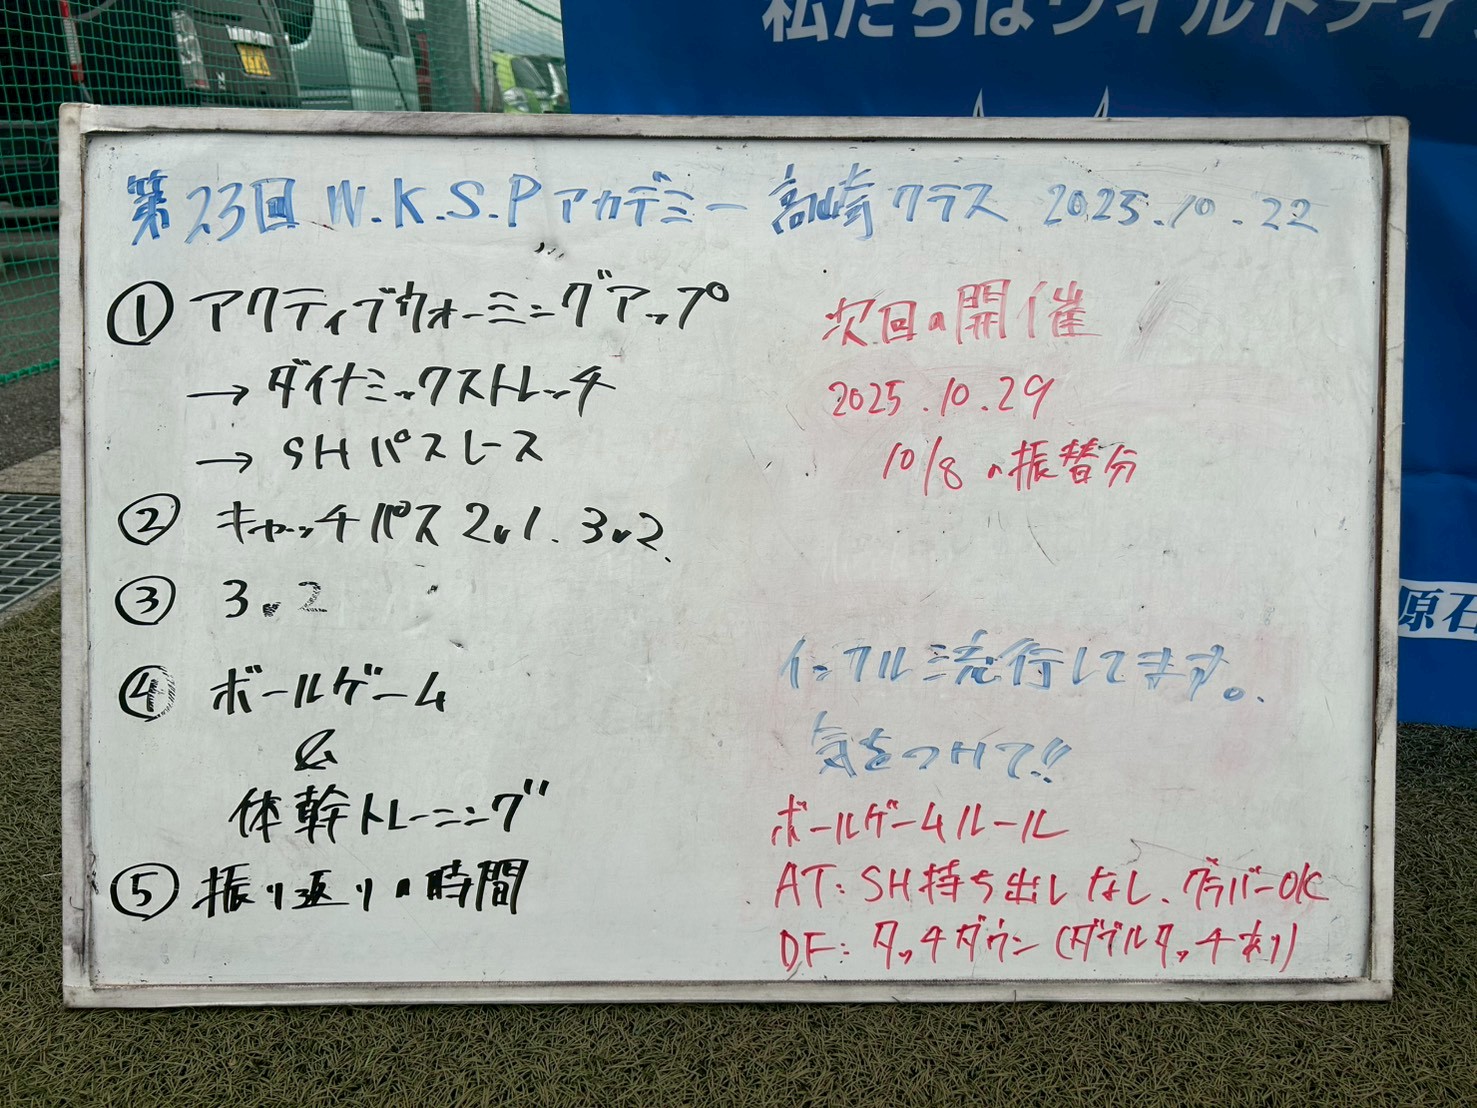 私たちはワイルドナイ
第23回 W.K.S.Pアカデミー 高崎クラス 2025.10.22
① アクティブウォーミングアップ
→ ダイナミックストレッチ
→ SHパスレース
② キャッチパス 2v1. 3v2.
③ 3v2
④ ボールゲーム
&
体幹トレーニング
⑤ 振り返りの時間
次回の開催
2025.10.29
10/8の振替分
インフル流行してます。
気をつけて!!
ボールゲームルール
AT: SH持ち出しなし、グラバーOK
DF: タッチダウン(ダブルタッチあり)
原石